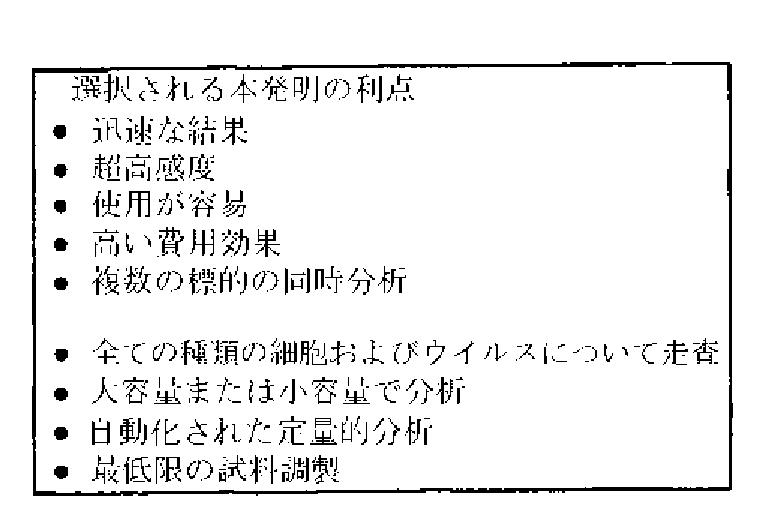 選択される本発明の利点
● 迅速な結果
● 超高感度
● 使用が容易
● 高い費用効果
● 複数の標的の同時分析
● 全ての種類の細胞およびウイルスについて走査
● 大容量または小容量で分析
● 自動化された定量的分析
● 最低限の試料調製